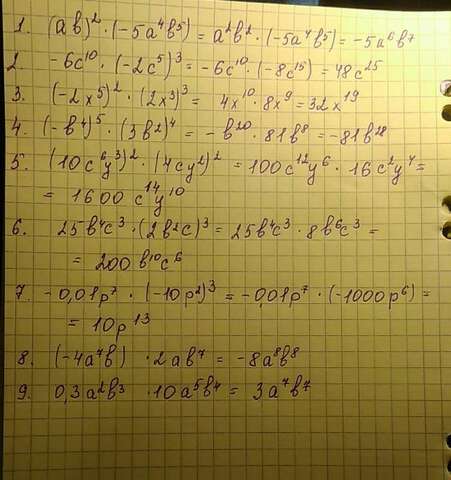 1. (ав)² · (-5a⁴b⁵) = a²b² · (-5a⁴b⁵) = -5a⁶b⁷
2. -6c¹⁰ · (-2c⁵)³ = -6c¹⁰ · (-8c¹⁵) = 48c²⁵
3. (-2x⁵)² · (2x³)³ = 4x¹⁰ · 8x⁹ = 32x¹⁹
4. (-b⁴)⁵ · (3b²)⁴ = -b²⁰ · 81b⁸ = -81b²⁸
5. (10c⁶y³)² · (4cy²)² = 100c¹²y⁶ · 16c²y⁴ =
= 1600 c¹⁴y¹⁰
6. 25b⁴c³ · (2b²c)³ = 25b⁴c³ · 8b⁶c³ =
= 200 b¹⁰c⁶
7. -0,01p⁷ · (-10p²)³ = -0,01p⁷ · (-1000p⁶) =
= 10p¹³
8. (-4a⁷b) · 2ab⁷ = -8a⁸b⁸
9. 0,3a²b³ · 10a⁵b⁴ = 3a⁷b⁷